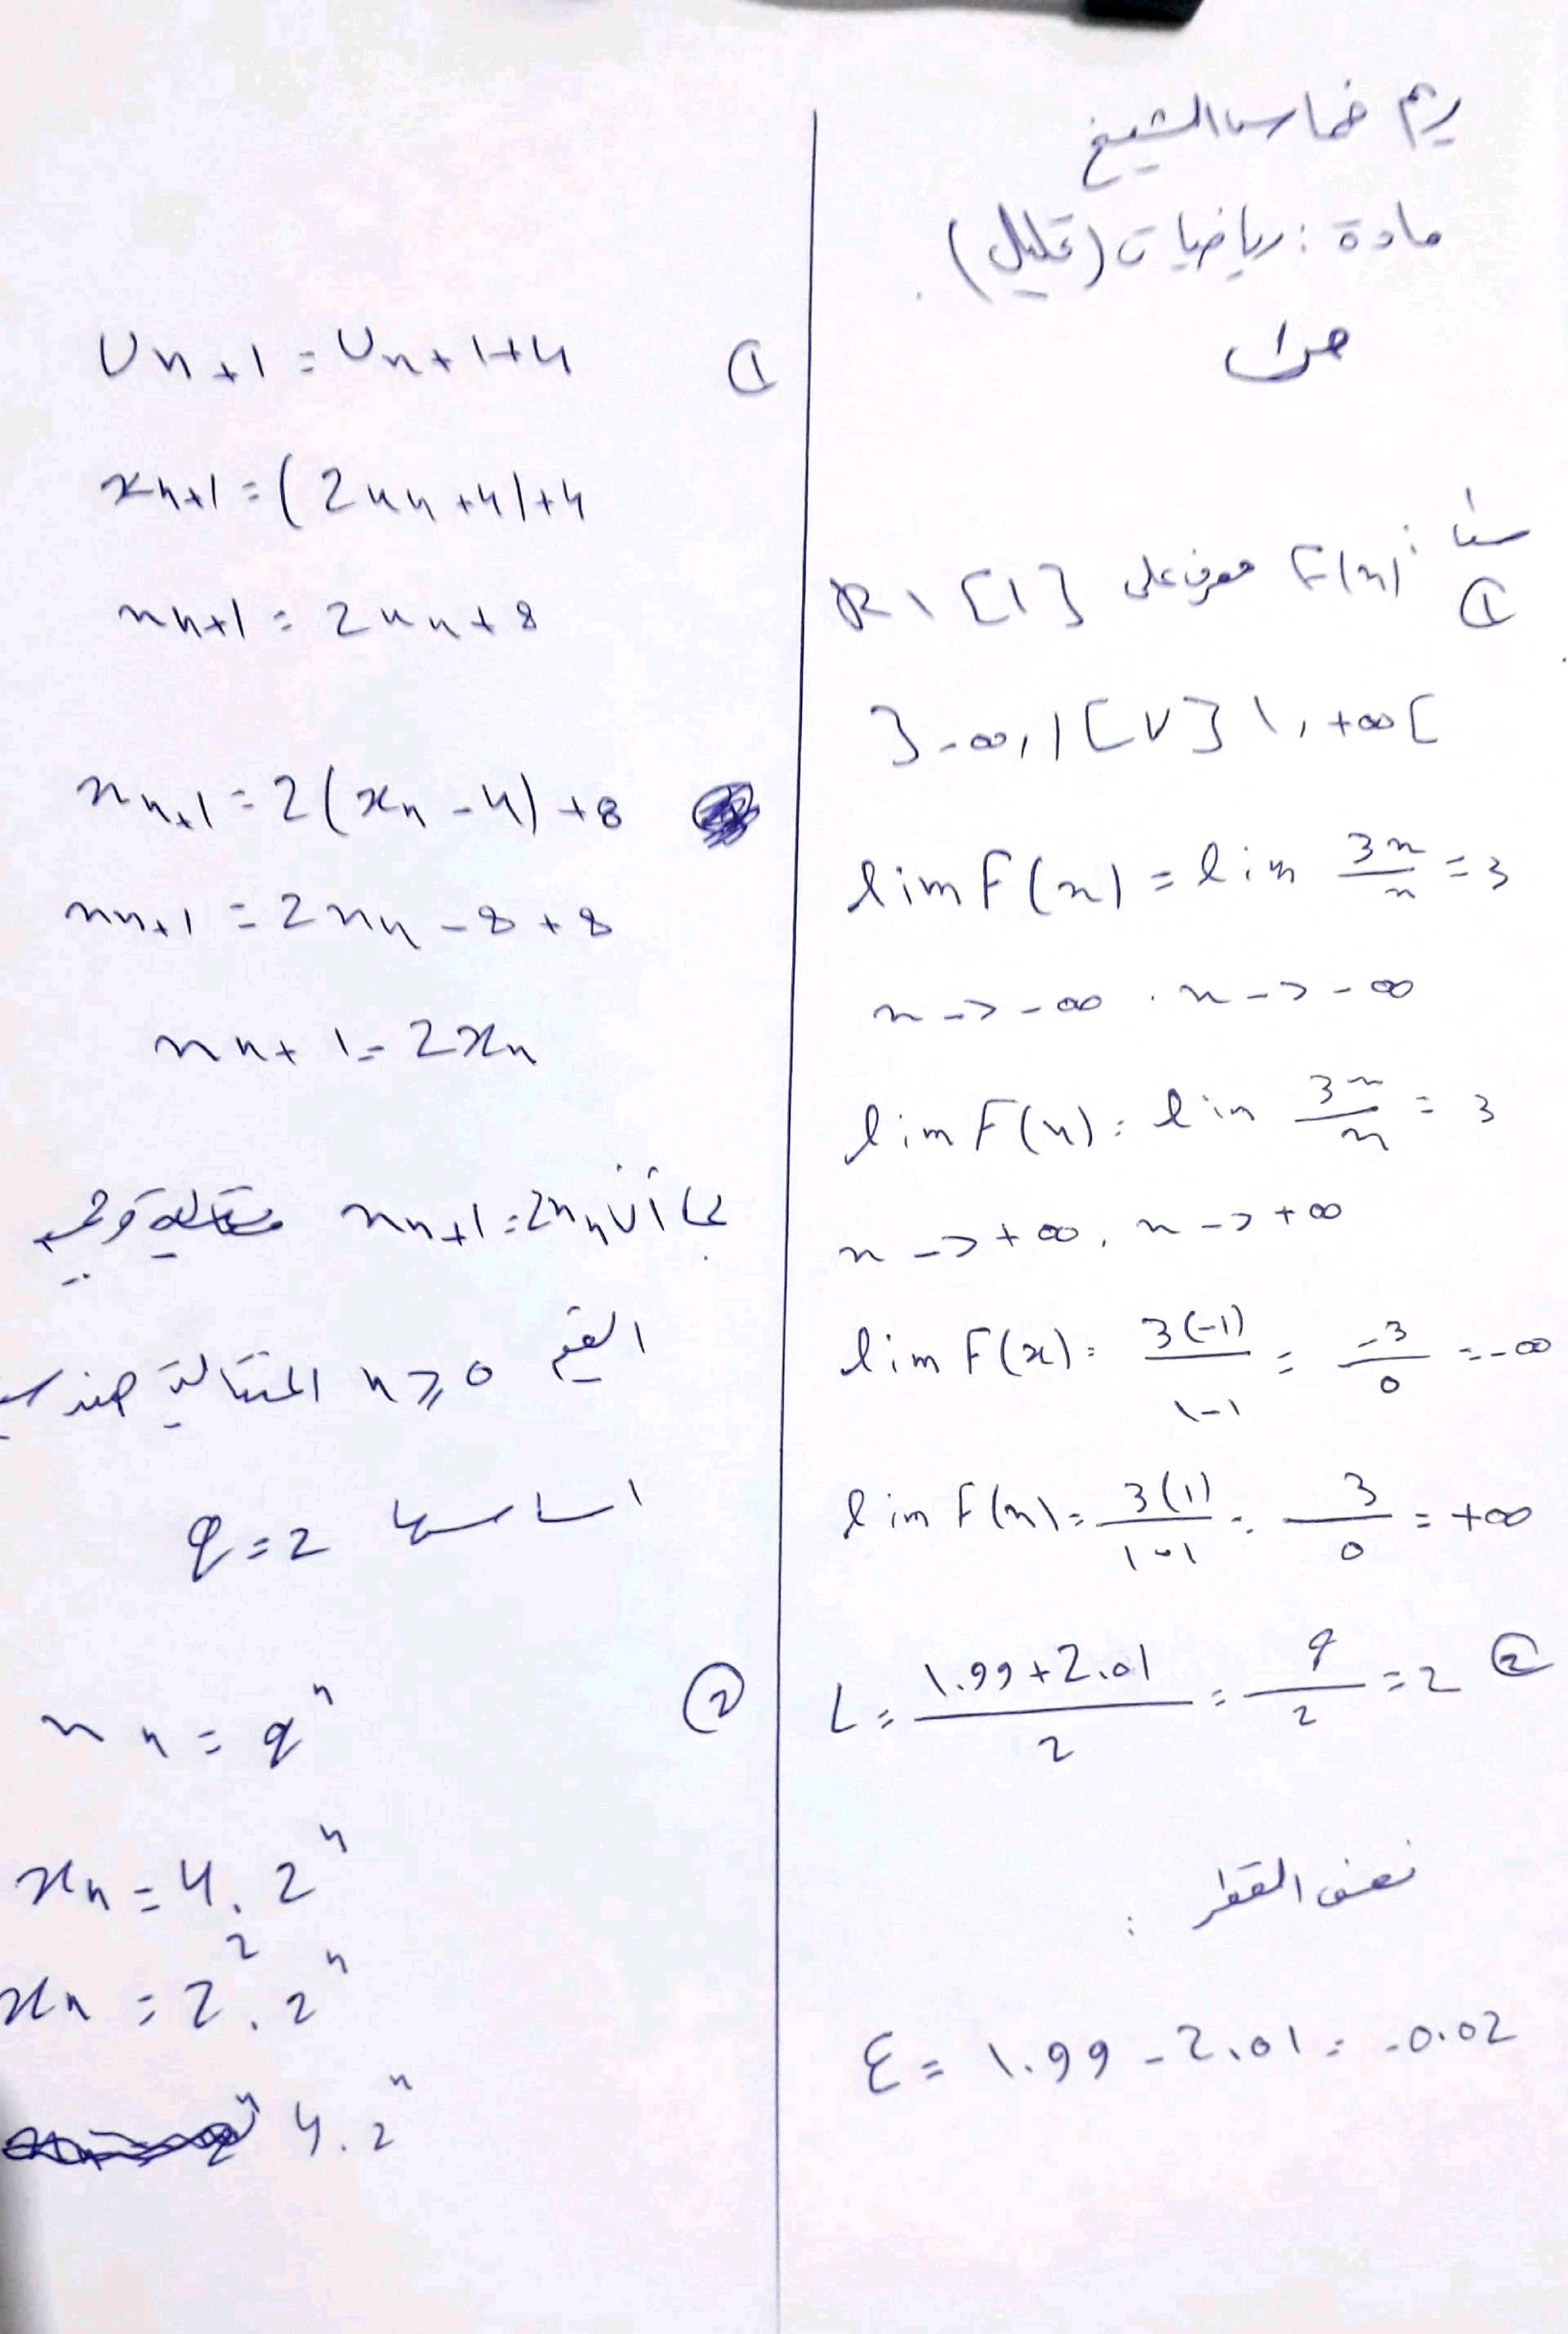 ريم خماس الشيخ
مادة: رياضيات (تحليل)
① F(x) معرف على R \ {1}
]-∞, 1[ ∪ ]1, +∞[
lim F(x) = lim 3x/x = 3
x -> -∞ . x -> -∞
lim F(x) = lim 3x/x = 3
x -> +∞, x -> +∞
lim F(x) = 3(-1)/1-1 = -3/0 = -∞
lim F(x) = 3(1)/1-1 = 3/0 = +∞
② L = 1.99+2.01/2 = 4/2 = 2
نصف القطر :
ε = 1.99 - 2.01 = -0.02
① Un+1 = Un+1+4
xn+1 = (2un+4)+4
xn+1 = 2un+8
xn+1 = 2(xn-4)+8
xn+1 = 2xn-8+8
xn+1 = 2xn
بما أن xn+1 = 2xn متتالية
القيم n≥0 المتتالية هندسية
اساسها q=2
② xn = qⁿ
xn = 4.2ⁿ
xn = 2².2ⁿ
4.2ⁿ